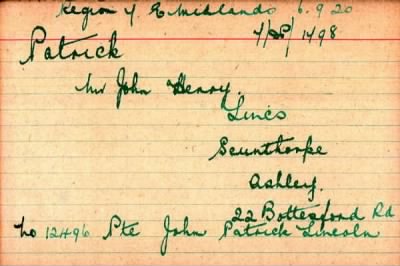 Region 4. E Midlands 6.9.20
7/RP/1498
Patrick
Mr John Henry.
Lincs
Scunthorpe
Ashley.
22 Bottesford Rd
No 12496 Pte John Patrick Lincoln